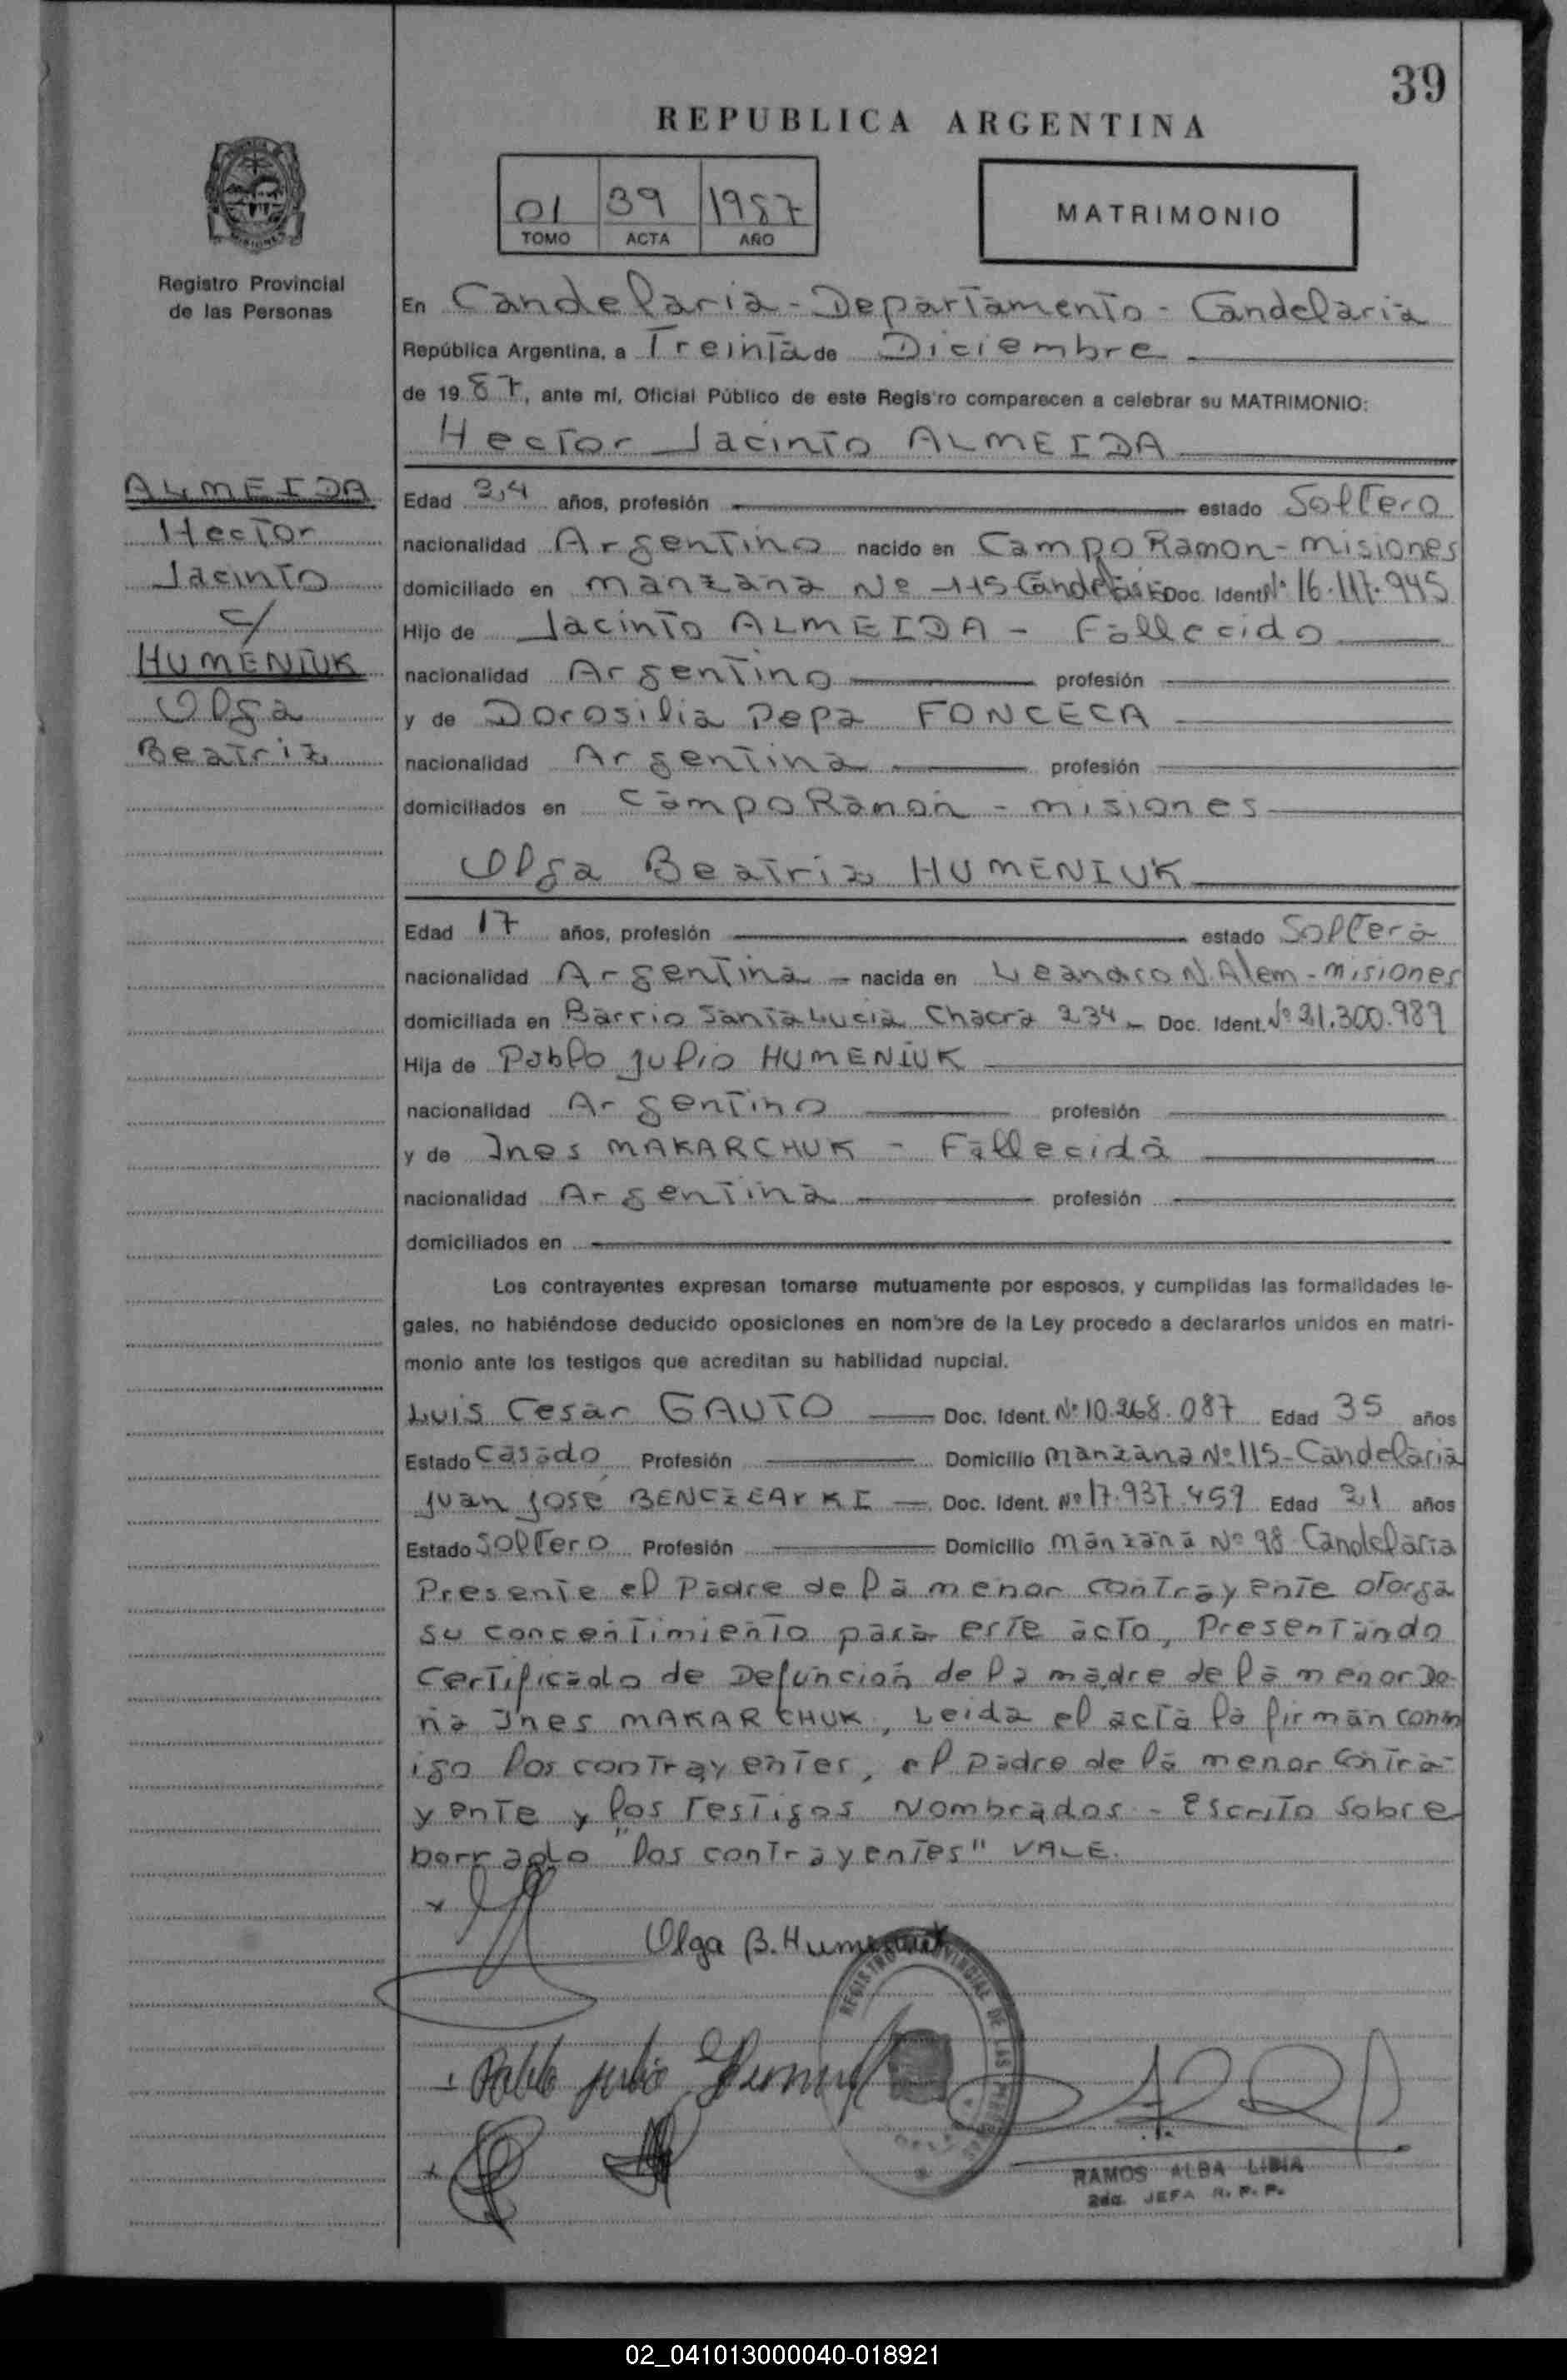 39
REPUBLICA ARGENTINA
01 39 1987
TOMO ACTA AÑO
MATRIMONIO
Registro Provincial
de las Personas
En Candelaria - Departamento - Candelaria
República Argentina, a Treinta de Diciembre
de 1987, ante mí, Oficial Público de este Registro comparecen a celebrar su MATRIMONIO:
Hector Jacinto ALMEIDA
ALMEIDA
Hector
Jacinto
c/
HUMENIUK
Olga
Beatriz
Edad 24 años, profesión estado Soltero
nacionalidad Argentino nacido en Campo Ramon - Misiones
domiciliado en manzana Nº 115 Candelaria Doc. Ident. Nº 16.117.945
Hijo de Jacinto ALMEIDA - Fallecido
nacionalidad Argentino profesión
y de Dorosilia Pepa FONCECA
nacionalidad Argentina profesión
domiciliados en Campo Ramon - misiones
Olga Beatriz HUMENIUK
Edad 17 años, profesión estado Soltera
nacionalidad Argentina - nacida en Leandro N. Alem - misiones
domiciliada en Barrio Santa Lucia Chacra 234 - Doc. Ident. Nº 21.300.989
Hija de Pablo Julio HUMENIUK
nacionalidad Argentino profesión
y de Ines MAKARCHUK - Fallecida
nacionalidad Argentina profesión
domiciliados en
Los contrayentes expresan tomarse mutuamente por esposos, y cumplidas las formalidades le-
gales, no habiéndose deducido oposiciones en nombre de la Ley procedo a declararlos unidos en matri-
monio ante los testigos que acreditan su habilidad nupcial.
Luis Cesar GAUTO Doc. Ident. Nº 10.268.087 Edad 35 años
Estado Casado Profesión Domicilio manzana Nº 115 - Candelaria
Juan José Doc. Ident. Nº 17.937.459 Edad 21 años
Estado Soltero Profesión Domicilio manzana Nº 98 Candelaria
Presente el Padre de la menor contrayente otorga
su concentimiento para este acto, Presentando
Certificado de Defuncion de la madre de la menor Do-
ña Ines MAKARCHUK, Leida el acta la firman conm
igo los contrayentes, el padre de la menor contra-
yente y los testigos Nombrados - Escrito sobre
borrado "los contrayentes" VALE.
Olga B. Humeniuk
Pablo Julio
REGISTRO PROVINCIAL DE LAS
RAMOS ALBA LIBIA
2da. JEFA R. P. P.
02_041013000040-018921